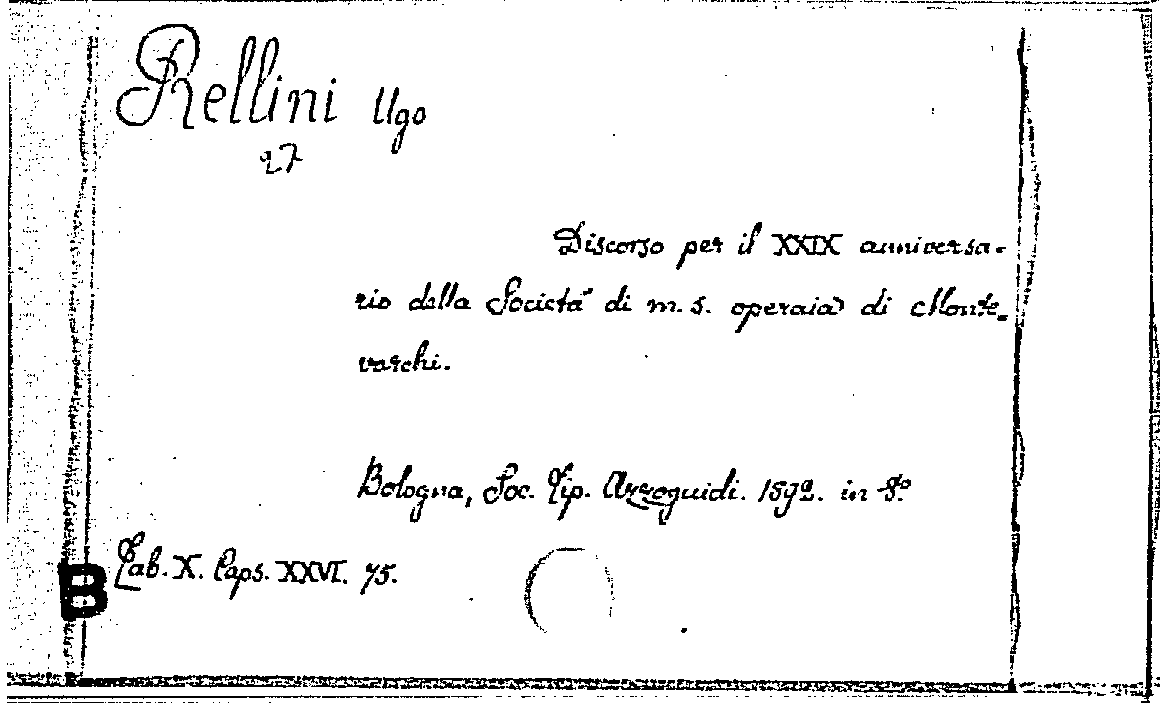 Rellini Ugo
27
Discorso per il XXIX anniversa-
rio della Società di m. s. operaia di Monte-
varchi.
Bologna, Soc. Tip. Azzoguidi. 1892. in 8.º
Tab. X. Caps. XXVI. 75.
B